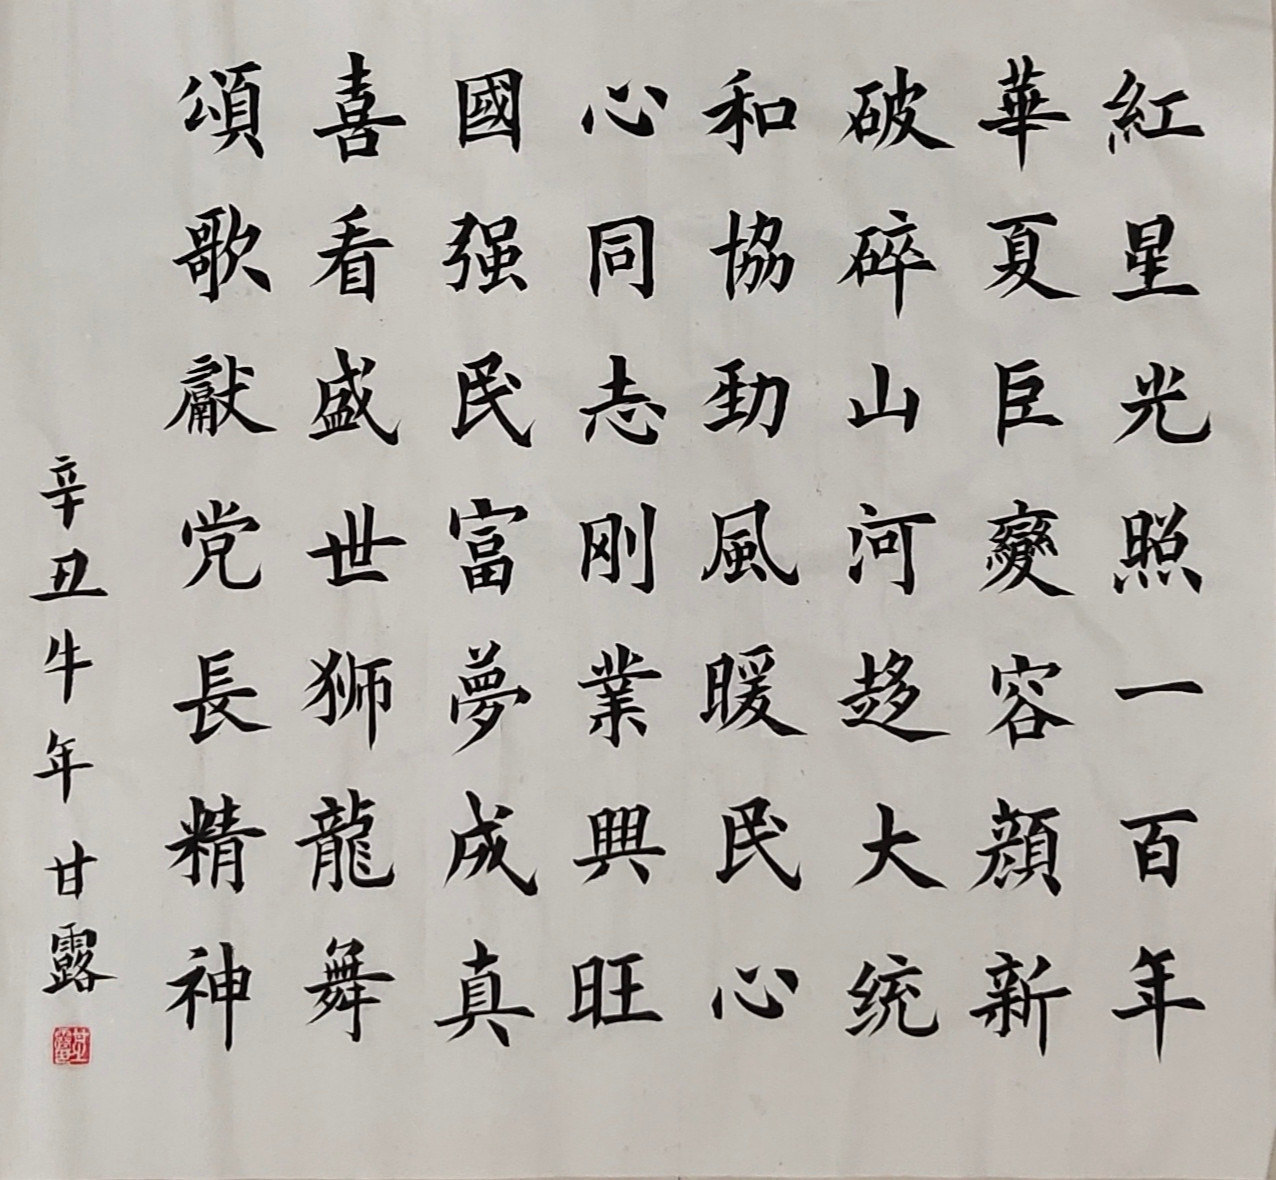 紅星光照一百年
華夏巨變容顔新
破碎山河趍大统
和協劲風暖民心
心同志刚業興旺
國强民富夢成真
喜看盛世狮龍舞
頌歌獻党長精神
辛丑牛年甘露